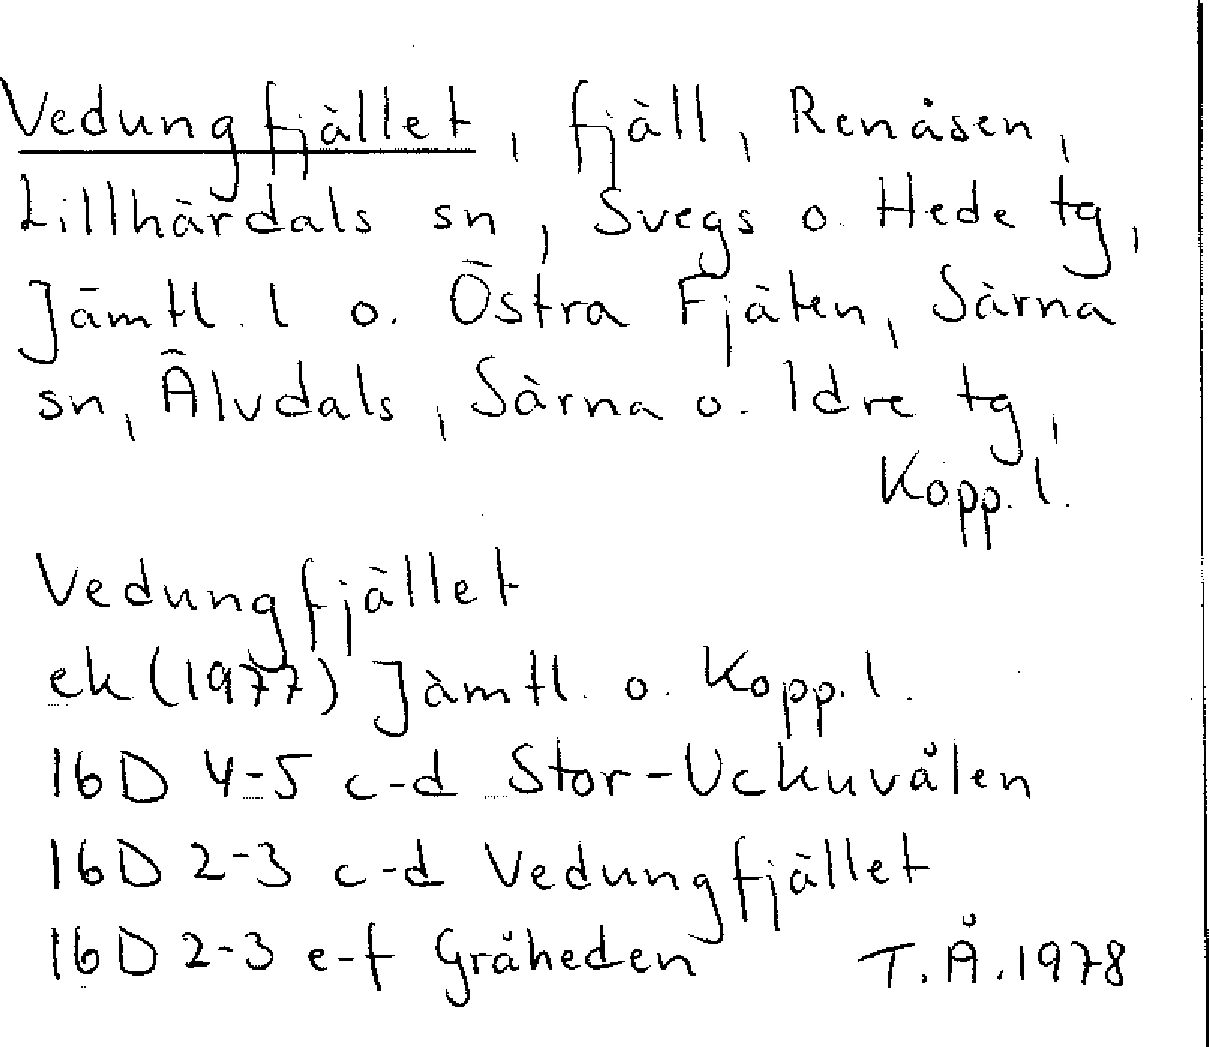 Vedungfjället, fjäll, Renåsen,
Lillhärdals sn, Svegs o. Hede tg,
Jämtl. l o. Östra Fjäten, Särna
sn, Älvdals, Särna o. Idre tg,
Kopp. l.
Vedungfjället
ek (1977) Jämtl. o. Kopp. l.
16D 4-5 c-d Stor-Uckuvålen
16D 2-3 c-d Vedungfjället
16D 2-3 e-f Gråheden T.Å.1978